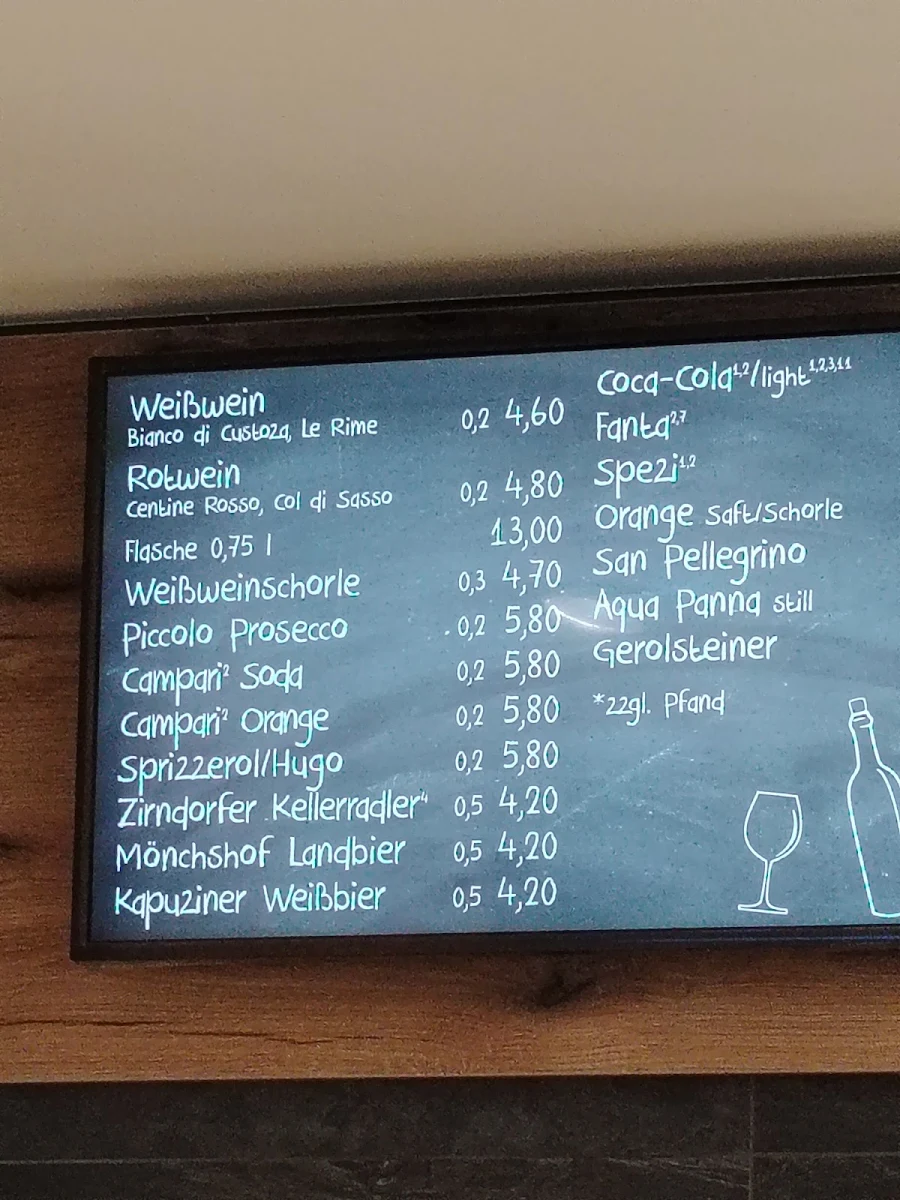 Weißwein
Bianco di Custoza, Le Rime 0,2 4,60
Rotwein
Centine Rosso, Col di Sasso 0,2 4,80
Flasche 0,75 l 13,00
Weißweinschorle 0,3 4,70
Piccolo Prosecco 0,2 5,80
Campari² Soda 0,2 5,80
Campari² Orange 0,2 5,80
Sprizzerol/Hugo 0,2 5,80
Zirndorfer Kellerradler⁴ 0,5 4,20
Mönchshof Landbier 0,5 4,20
Kapuziner Weißbier 0,5 4,20
Coca-Cola¹,²/light¹,²,³,¹¹
Fanta²,⁷
Spezi¹,²
Orange Saft/Schorle
San Pellegrino
Aqua Panna still
Gerolsteiner
*zzgl. Pfand